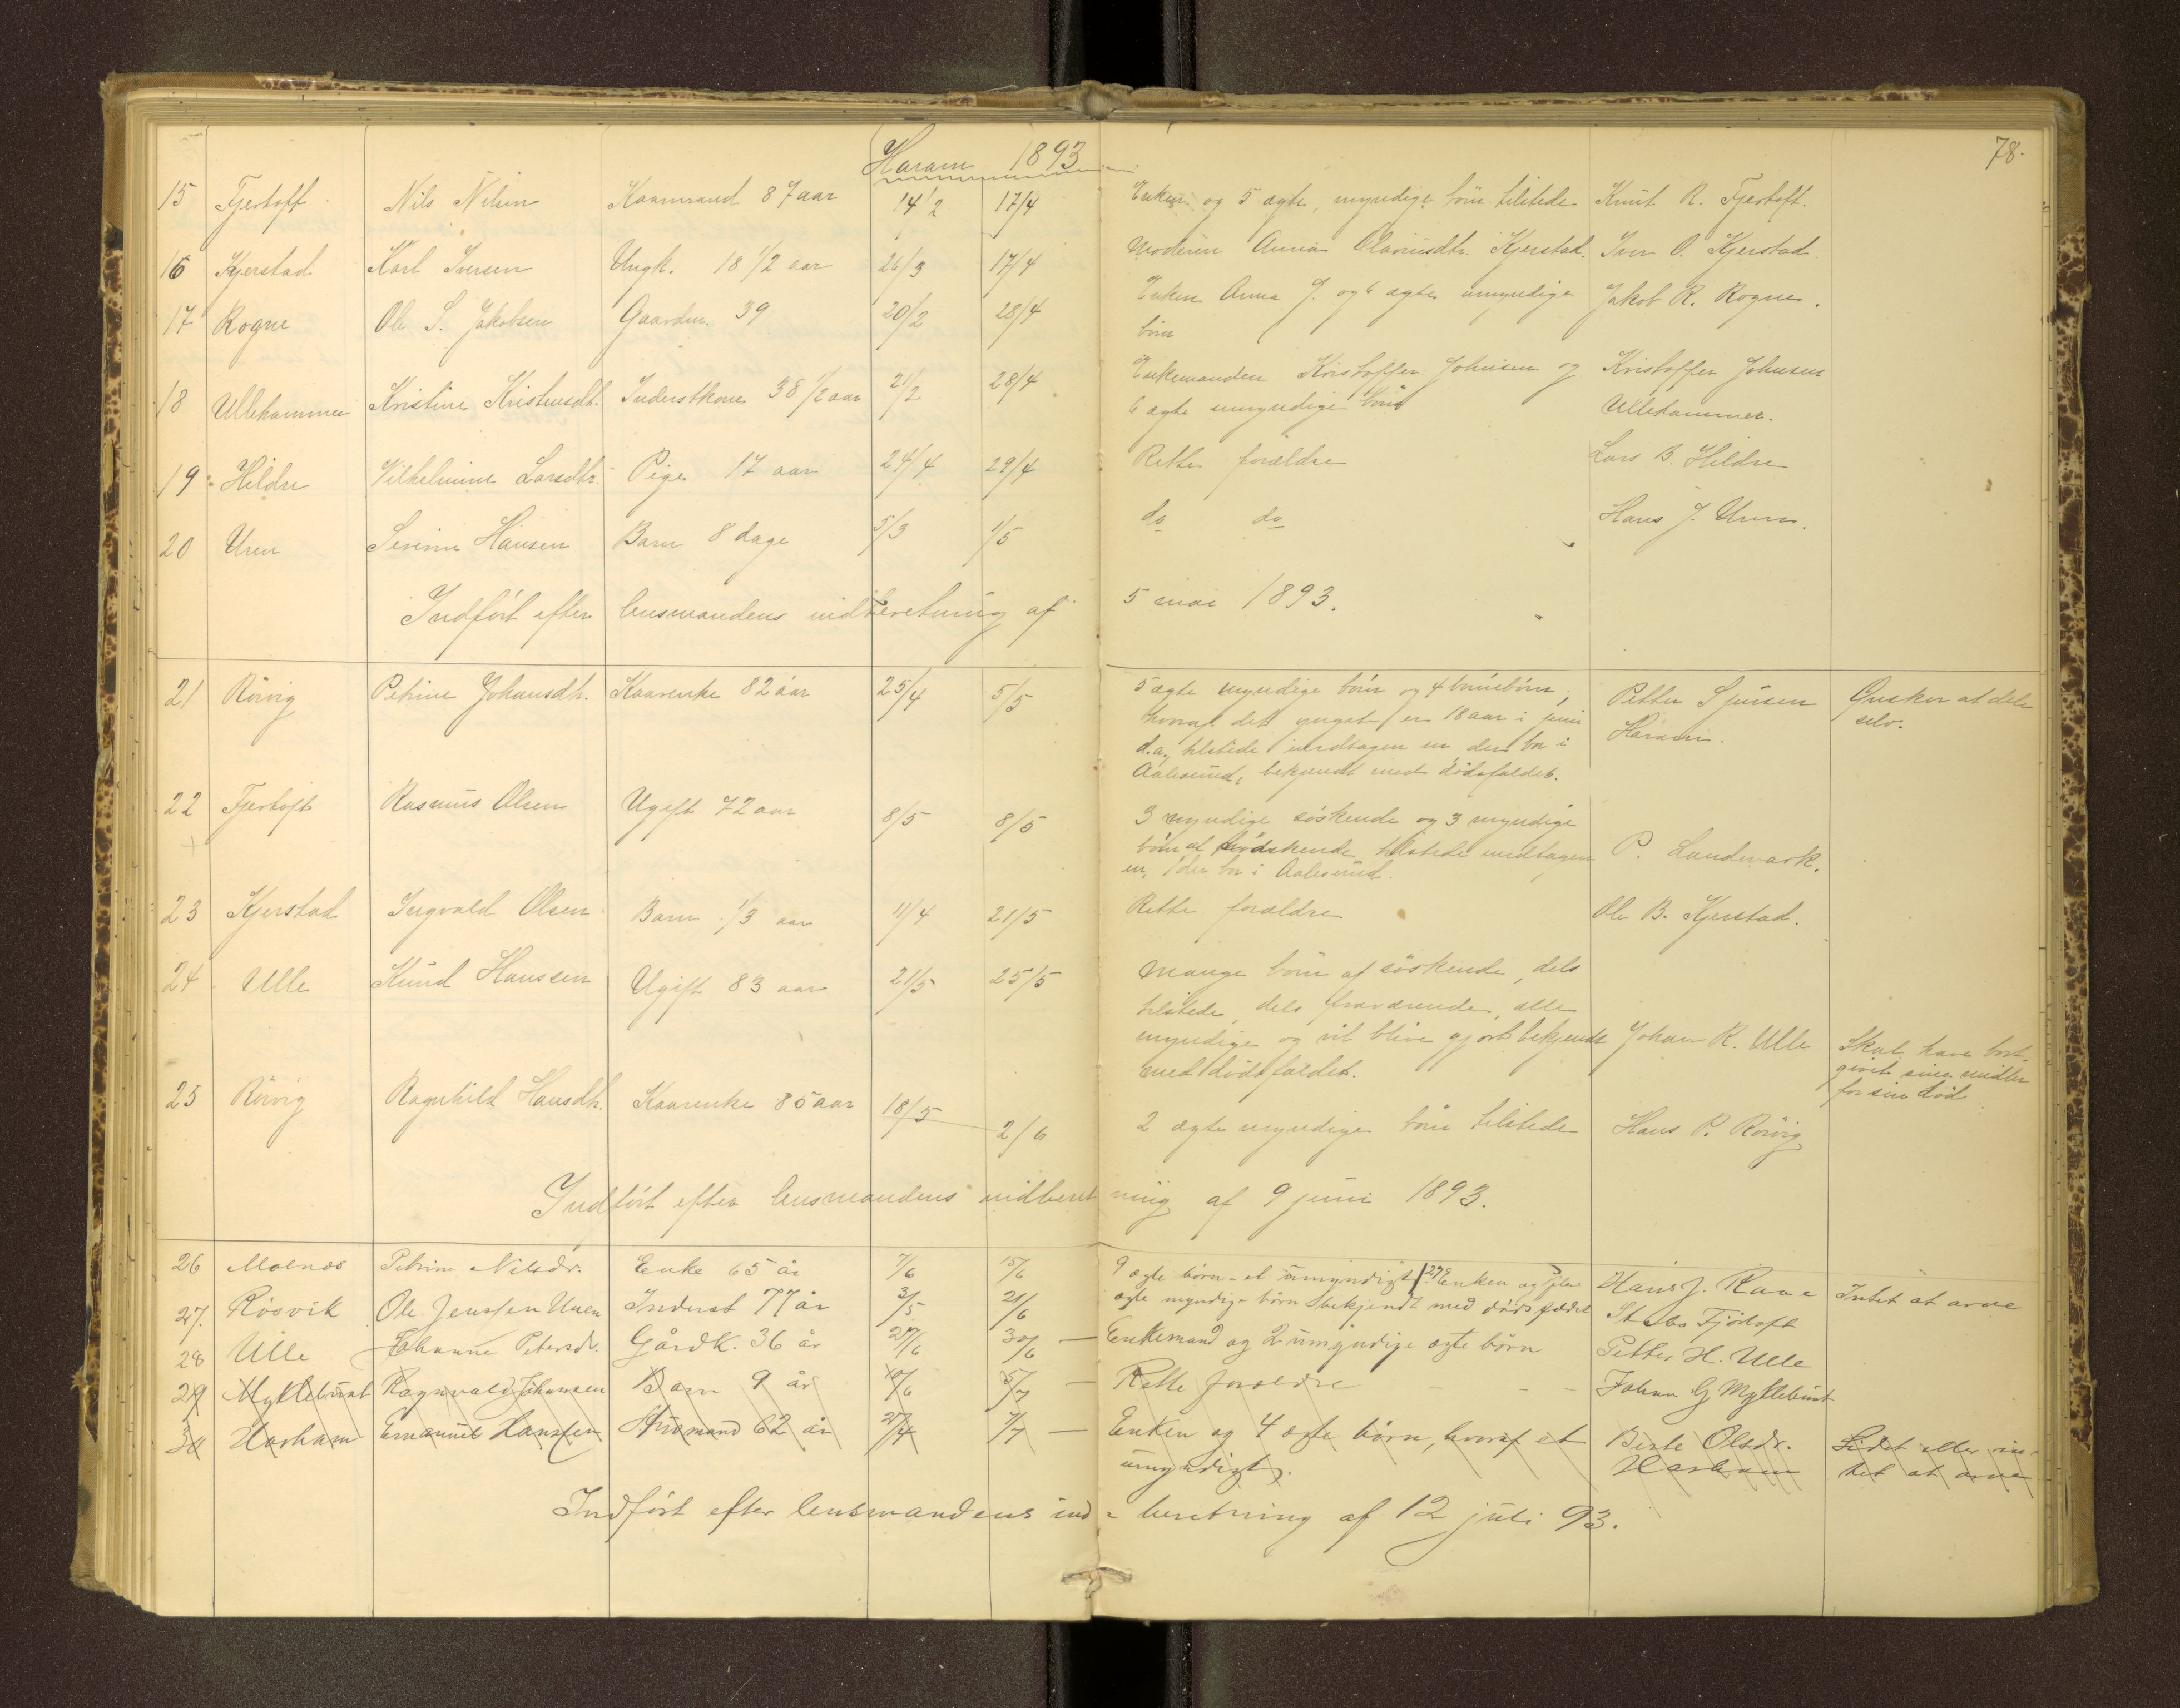 Haram 1893
78.
15 Fjertoft Nils Nilsen Kaarmand 87 aar 14/2 17/4 Enken og 5 ægte, myndige børn tilstede Knut R. Fjertoft.
16 Kjerstad Karl Iversen Ungk. 18 1/2 aar 26/3 17/4 Moderen Anna Olaviusdtr. Kjerstad. Iver O. Kjerstad.
17 Rogne Ole S. Jakobsen Gaardm. 39 20/2 28/4 Enken Anna J. og 6 ægte umyndige Jakob R. Rogne.
børn
18 Ullehammer Kristine Kristensdtr. Inderstkone 38 1/2 aar 21/2 28/4 Enkemanden Kristoffer Johnsen og Kristoffer Johnsen
6 ægte umyndige børn Ullehammer.
19 Hildre Vilhelmine Larsdtr. Pige 17 aar 24/4 29/4 Rette forældre Lars B. Hildre
20 Uren Severin Hansen Barn 8 dage 5/3 1/5 do do Hans J. Uren.
Indført efter lensmandens indberetning af 5 mai 1893.
21 Rörvig Petrine Johansdtr. Kaarenke 82 aar 25/4 5/5 5 ægte myndige børn og 4 børnebørn, Petter Sjursen Ønsker at dele
hvoraf det yngste er 18 aar i juni Haram. selv.
d.a., tilstede undtagen en der bor i
Aalesund, bekjendt med dödsfaldet.
22 Fjertoft Rasmus Olsen Ugift 72 aar 8/5 8/5 3 myndige søskende og 3 myndige
børn af søskende tilstede undtagen P. Landmark.
en, der bor i Aalesund.
23 Kjerstad Ingvald Olsen Barn 1/3 aar 11/4 21/5 Rette forældre Ole B. Kjerstad.
24 Ulle Knud Hanssen Ugift 83 aar 21/5 25/5 Mange børn af søskende, dels
tilstede, dels fraværende, alle
myndige og vil blive gjort bekjendt Johan K. Ulle Skal have bort-
med dödsfaldet. givet sine midler
før sin död.
25 Rörvig Ragnhild Hansdtr. Kaarenke 85 aar 18/5 2/6 2 ægte myndige børn tilstede Hans P. Rörvig
Indført efter lensmandens indberetning af 9 juni 1893.
26 Malnæs Petrine Nilsdr. Enke 65 år 7/6 15/6 9 ægte børn - et umyndigt Hans J. Rane Intet at arve
27. Røsvik Ole Jenssen Uren Inderst 77 år 3/5 21/6 Enken og flere ægte myndige børn bekjendt med dødsfaldet Fjörtoft
28 Ulle Johanne Petersdr. Gårdk. 36 år 27/6 30/6 — Enkemand og 2 umyndige ægte børn Petter H. Ulle
29 Myklebust Ragnvald Johansen Barn 9 år 10/6 5/7 — Rette forældre - - - Johan G Myklebust
30 Harham Emanuel Hanssen Husmand 62 år 27/4 7/7 — Enken og 4 ægte børn, hvoraf et Berte Olsdr. Lidet eller in-
umyndigt. Harham tet at arve
Indført efter lensmandens ind- beretning af 12 juli 93.